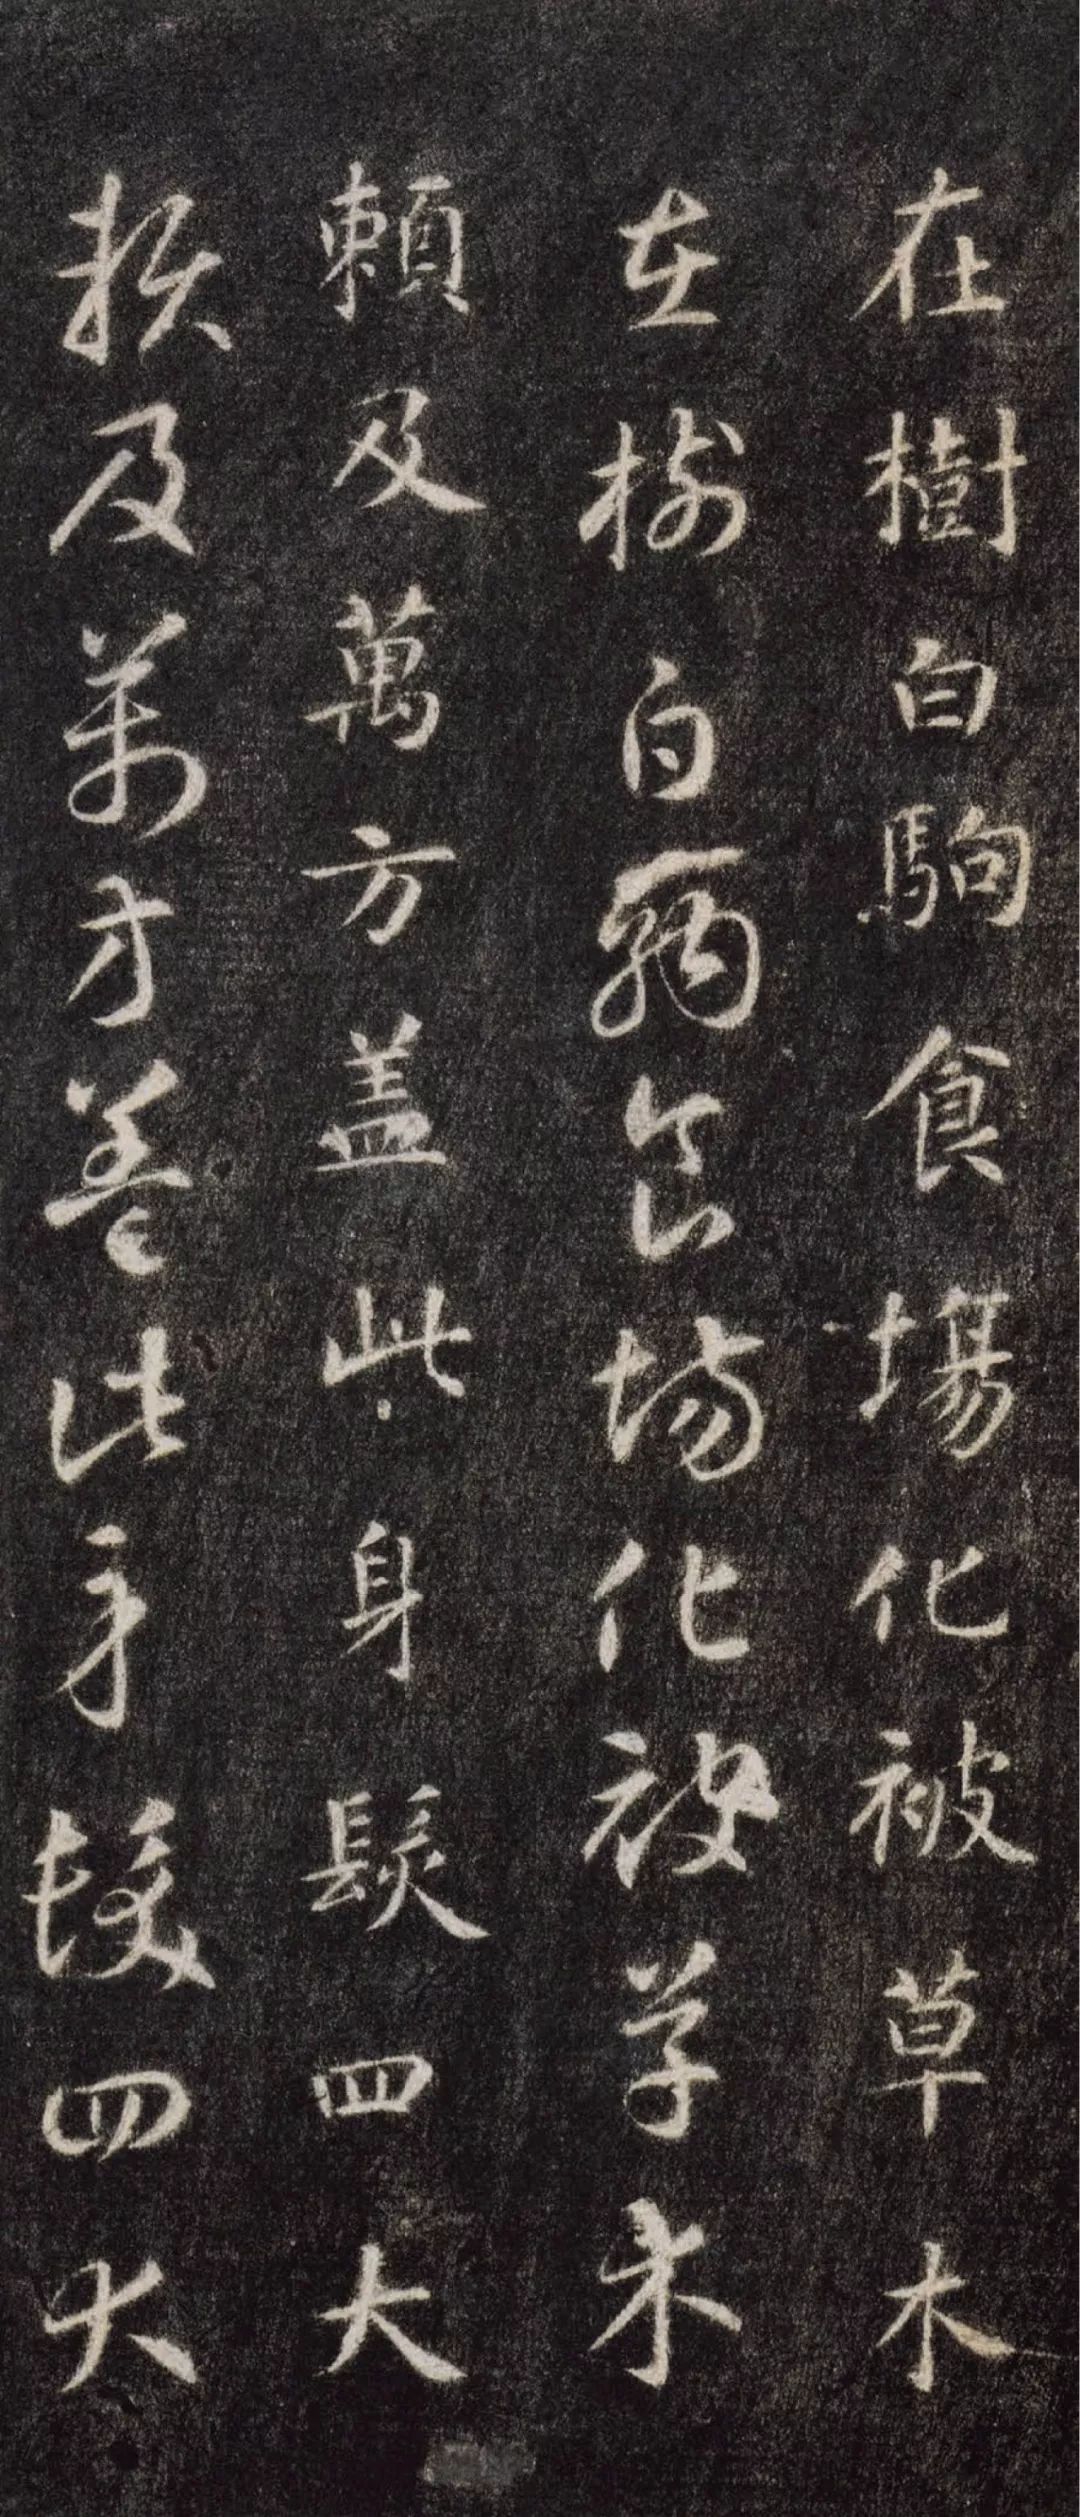 在樹白駒食場化被草木
在樹白駒食場化被草木
賴及萬方盖此身髮四大
賴及萬方盖此身髮四大